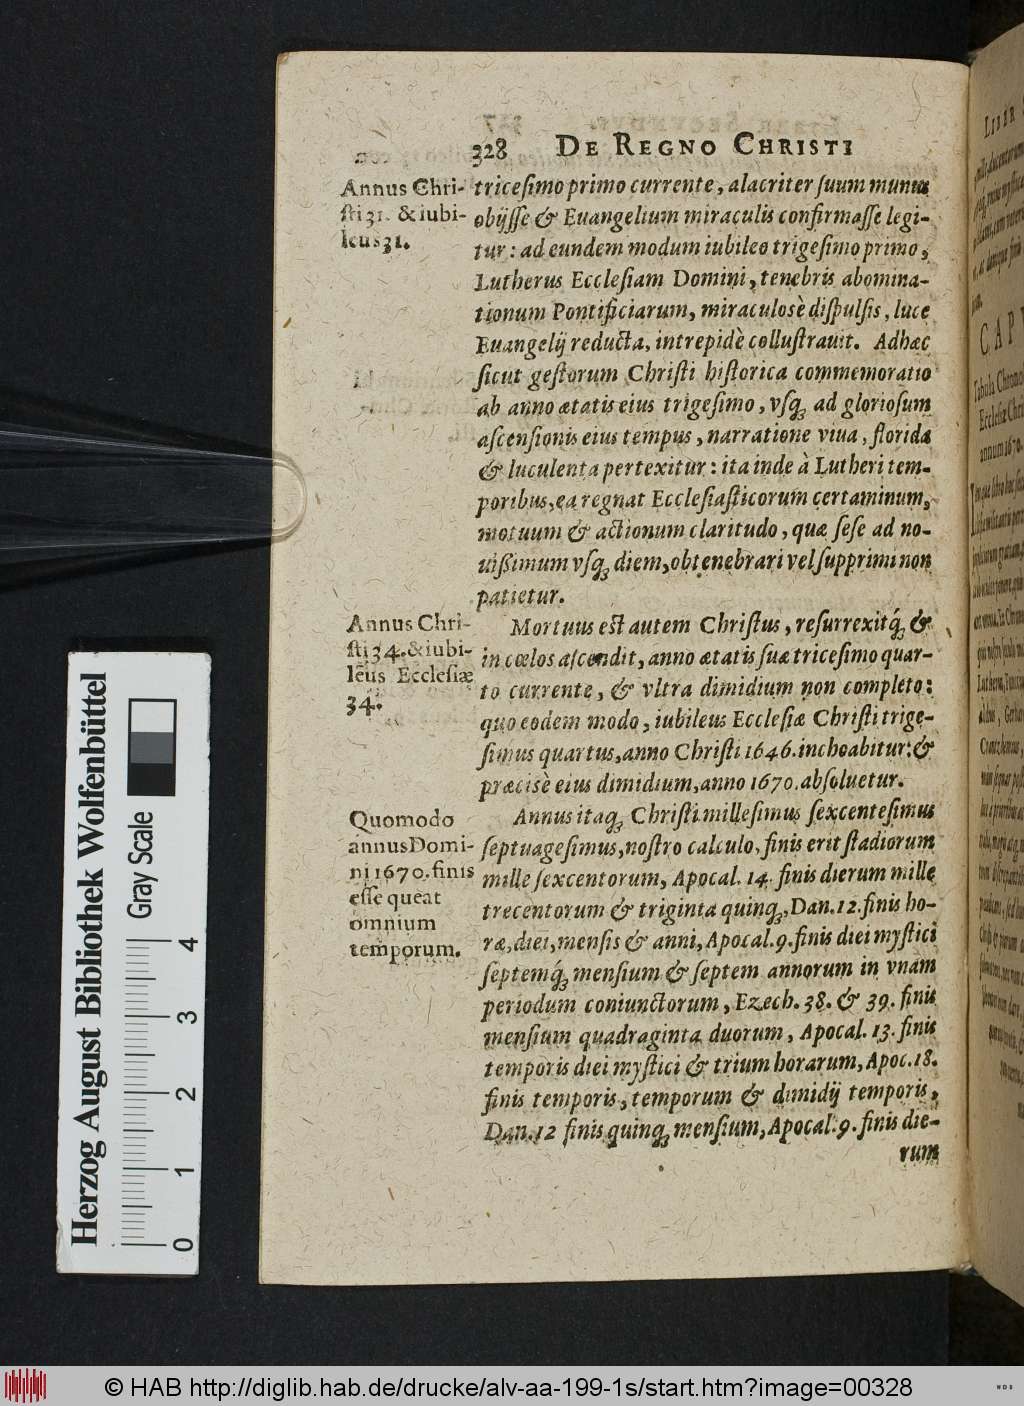 328 DE REGNO CHRISTI
Annus Chri-
sti 31. & iubi-
leus 31.
tricesimo primo currente, alacriter suum munus
obijsse & Euangelium miraculis confirmasse legi-
tur: ad eundem modum iubileo trigesimo primo,
Lutherus Ecclesiam Domini, tenebris abomina-
tionum Pontificiarum, miraculosè dispulsis, luce
Euangelij reducta, intrepidè collustrauit. Adhæc
sicut gestorum Christi historica commemoratio
ab anno ætatis eius trigesimo, vsq́ꝫ ad gloriosum
ascensionis eius tempus, narratione viua, florida
& luculenta pertexitur: ita inde à Lutheri tem-
poribus, ea regnat Ecclesiasticorum certaminum,
motuum & actionum claritudo, quæ sese ad no-
uißimum vsqꝫ diem, obtenebrari vel supprimi non
patietur.
Annus Chri-
sti 34. & iubi-
leus Ecclesiæ
34.
Mortuus est autem Christus, resurrexitq́ꝫ &
in cœlos ascendit, anno ætatis suæ tricesimo quar-
to currente, & vltra dimidium non completo:
quo eodem modo, iubileus Ecclesiæ Christi trige-
simus quartus, anno Christi 1646. inchoabitur: &
præcisè eius dimidium, anno 1670. absoluetur.
Quomodo
annus Domi-
ni 1670. finis
esse queat
omnium
temporum.
Annus itaqꝫ Christi millesimus sexcentesimus
septuagesimus, nostro calculo, finis erit stadiorum
mille sexcentorum, Apocal. 14. finis dierum mille
trecentorum & triginta quinqꝫ, Dan. 12. finis ho-
ræ, diei, mensis & anni, Apocal. 9. finis diei mystici
septemq́ꝫ mensium & septem annorum in vnam
periodum coniunctorum, Ezech. 38. & 39. finis
mensium quadraginta duorum, Apocal. 13. finis
temporis diei mystici & trium horarum, Apoc. 18.
finis temporis, temporum & dimidij temporis,
Dan. 12 finis quinqꝫ mensium, Apocal. 9. finis die-
rum
Herzog August Bibliothek Wolfenbüttel
Gray Scale
0 1 2 3 4
© HAB http://diglib.hab.de/drucke/alv-aa-199-1s/start.htm?image=00328